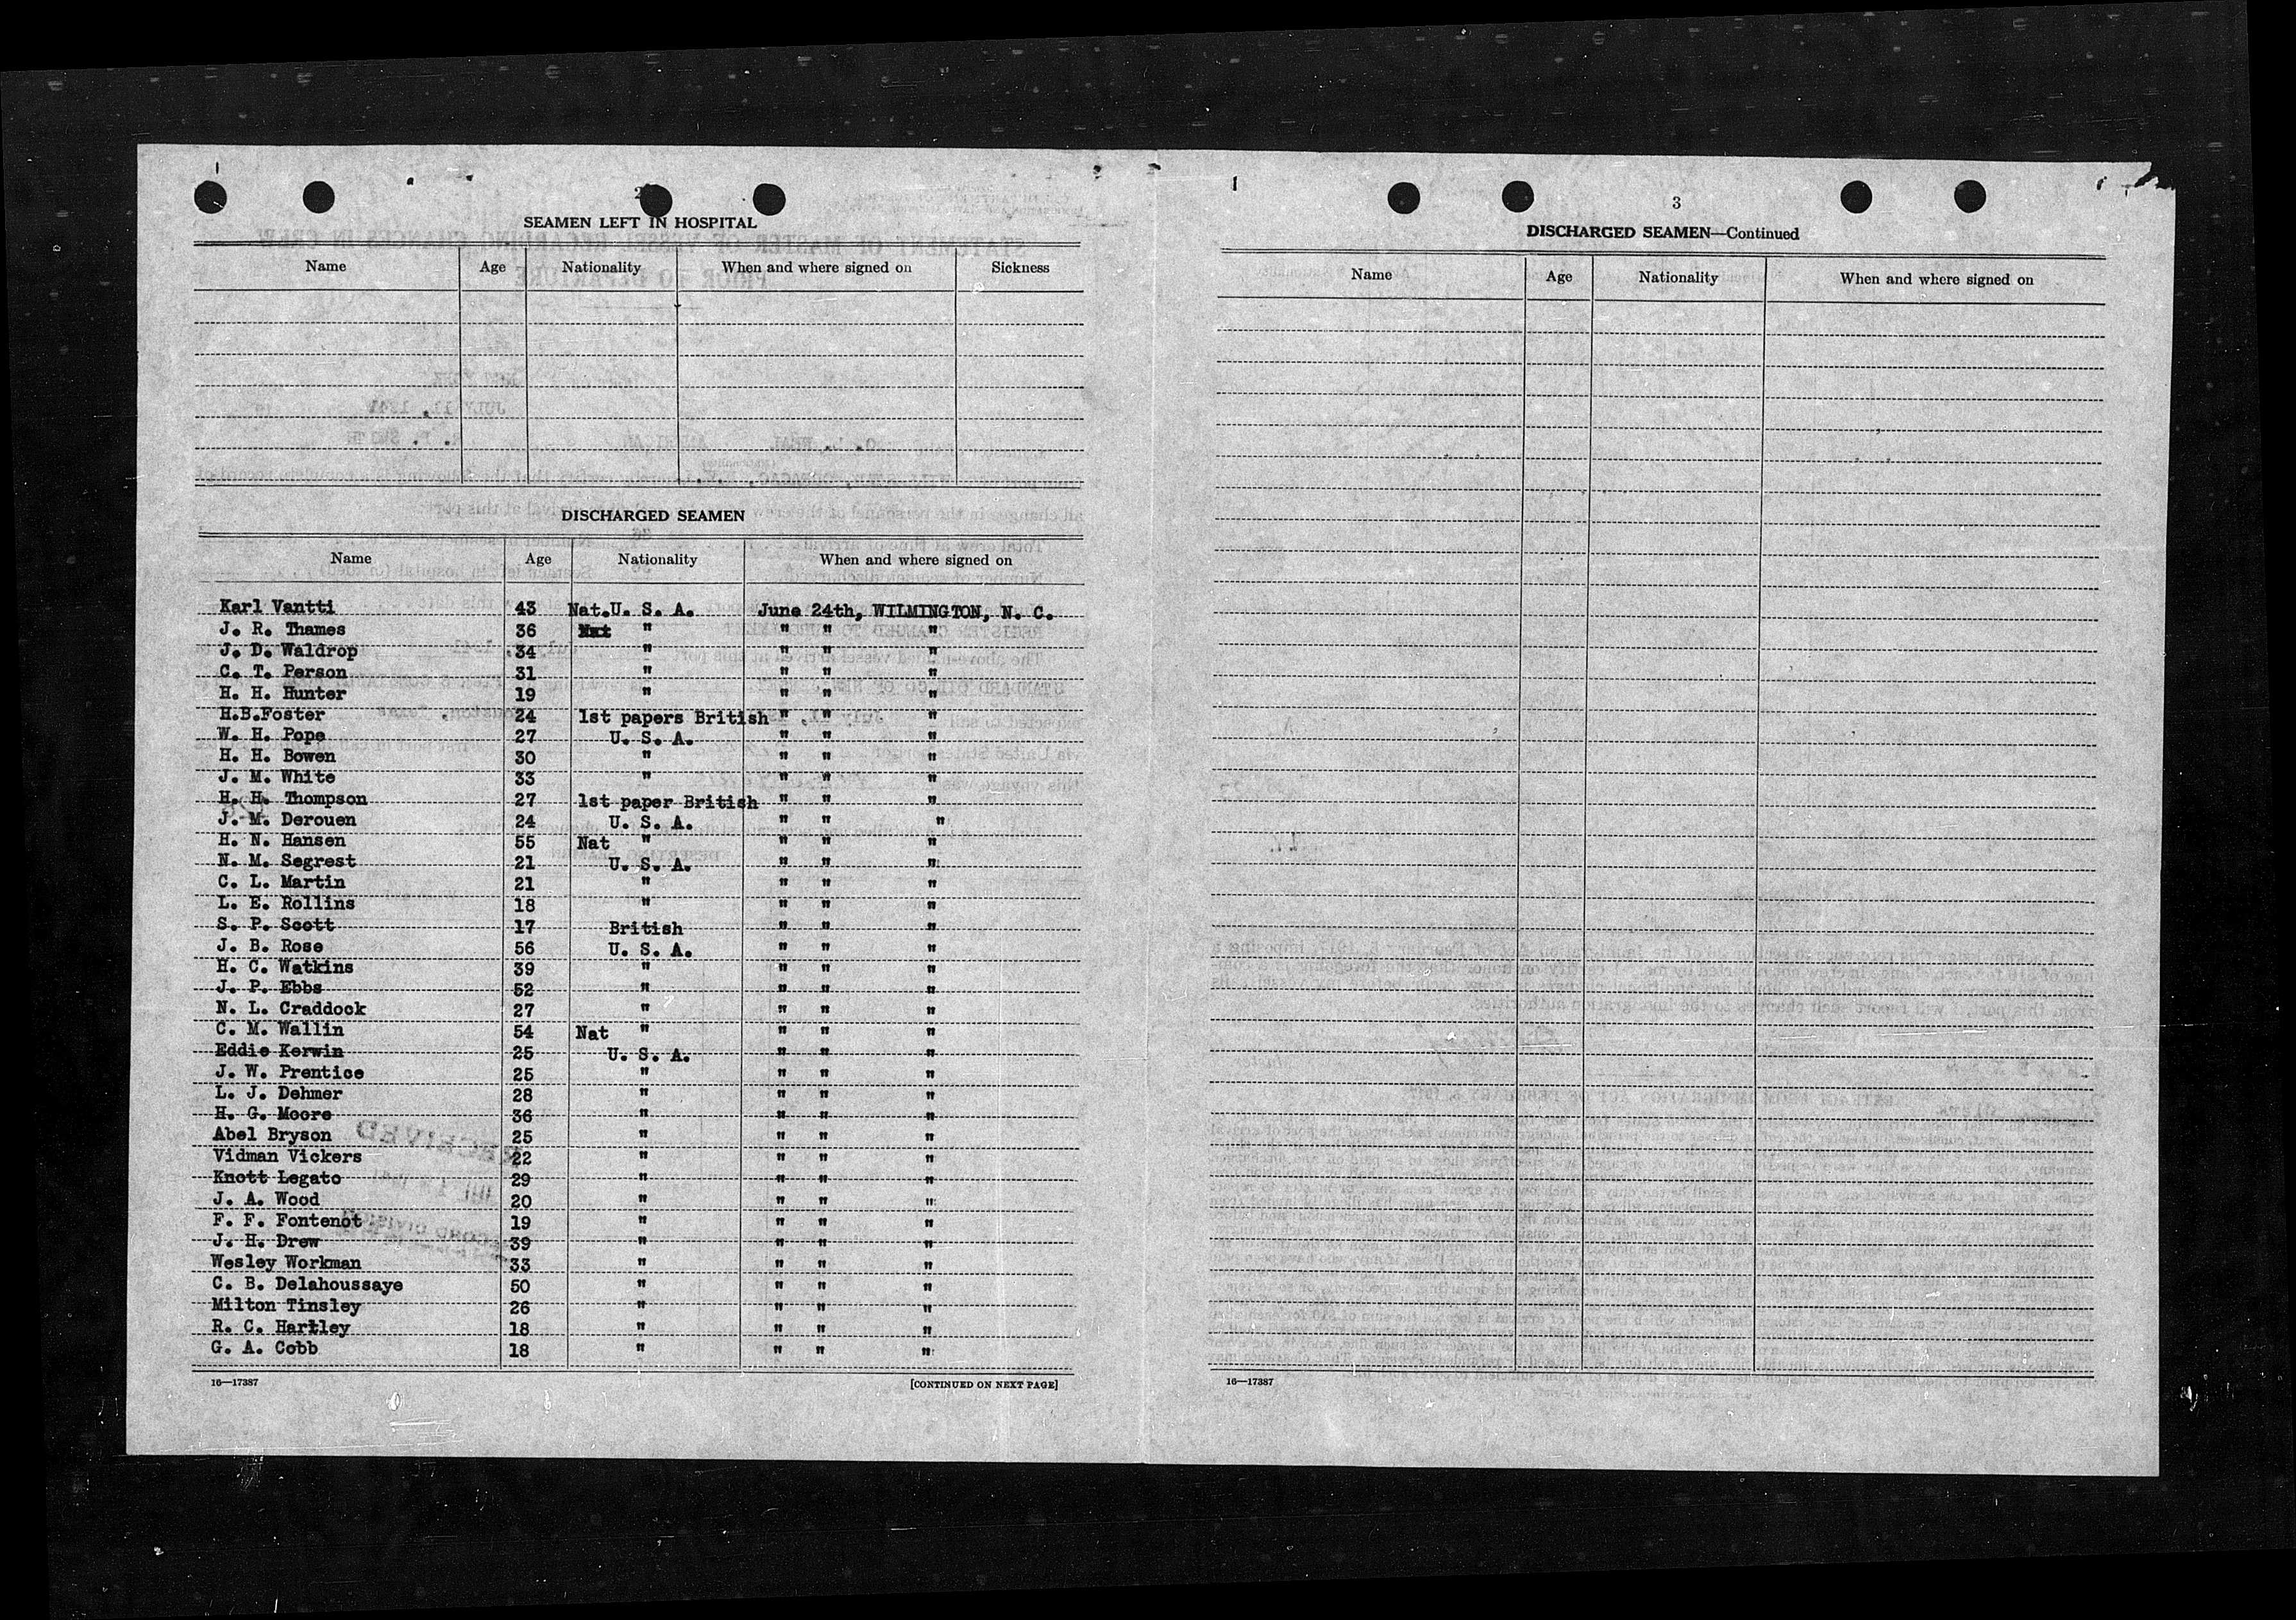 2
SEAMEN LEFT IN HOSPITAL
Name Age Nationality When and where signed on Sickness
DISCHARGED SEAMEN
Name Age Nationality When and where signed on
Karl Vantti 43 Nat.U. S. A. June 24th, WILMINGTON, N. C.
J. R. Thames 36 " " " "
J. D. Waldrop 34 " " " "
C. T. Person 31 " " " "
H. H. Hunter 19 " " " "
H.B.Foster 24 1st papers British " " "
W. H. Pope 27 U. S. A. " " "
H. H. Bowen 30 " " " "
J. M. White 33 " " " "
H. H. Thompson 27 1st paper British " " "
J. M. Derouen 24 U. S. A. " " "
H. N. Hansen 55 Nat " " " "
N. M. Segrest 21 U. S. A. " " "
C. L. Martin 21 " " " "
L. E. Rollins 18 " " " "
S. P. Scott 17 British " " "
J. B. Rose 56 U. S. A. " " "
H. C. Watkins 39 " " " "
J. P. Ebbs 52 " " " "
N. L. Craddock 27 " " " "
C. M. Wallin 54 Nat " " " "
Eddie Kerwin 25 U. S. A. " " "
J. W. Prentice 25 " " " "
L. J. Dehmer 28 " " " "
H. G. Moore 36 " " " "
Abel Bryson 25 " " " "
Vidman Vickers 22 " " " "
Knott Legato 29 " " " "
J. A. Wood 20 " " " "
F. F. Fontenot 19 " " " "
J. H. Drew 39 " " " "
Wesley Workman 33 " " " "
C. B. Delahoussaye 50 " " " "
Milton Tinsley 26 " " " "
R. C. Hartley 18 " " " "
G. A. Cobb 18 " " " "
16—17387 [CONTINUED ON NEXT PAGE]
3
DISCHARGED SEAMEN—Continued
Name Age Nationality When and where signed on
16—17387